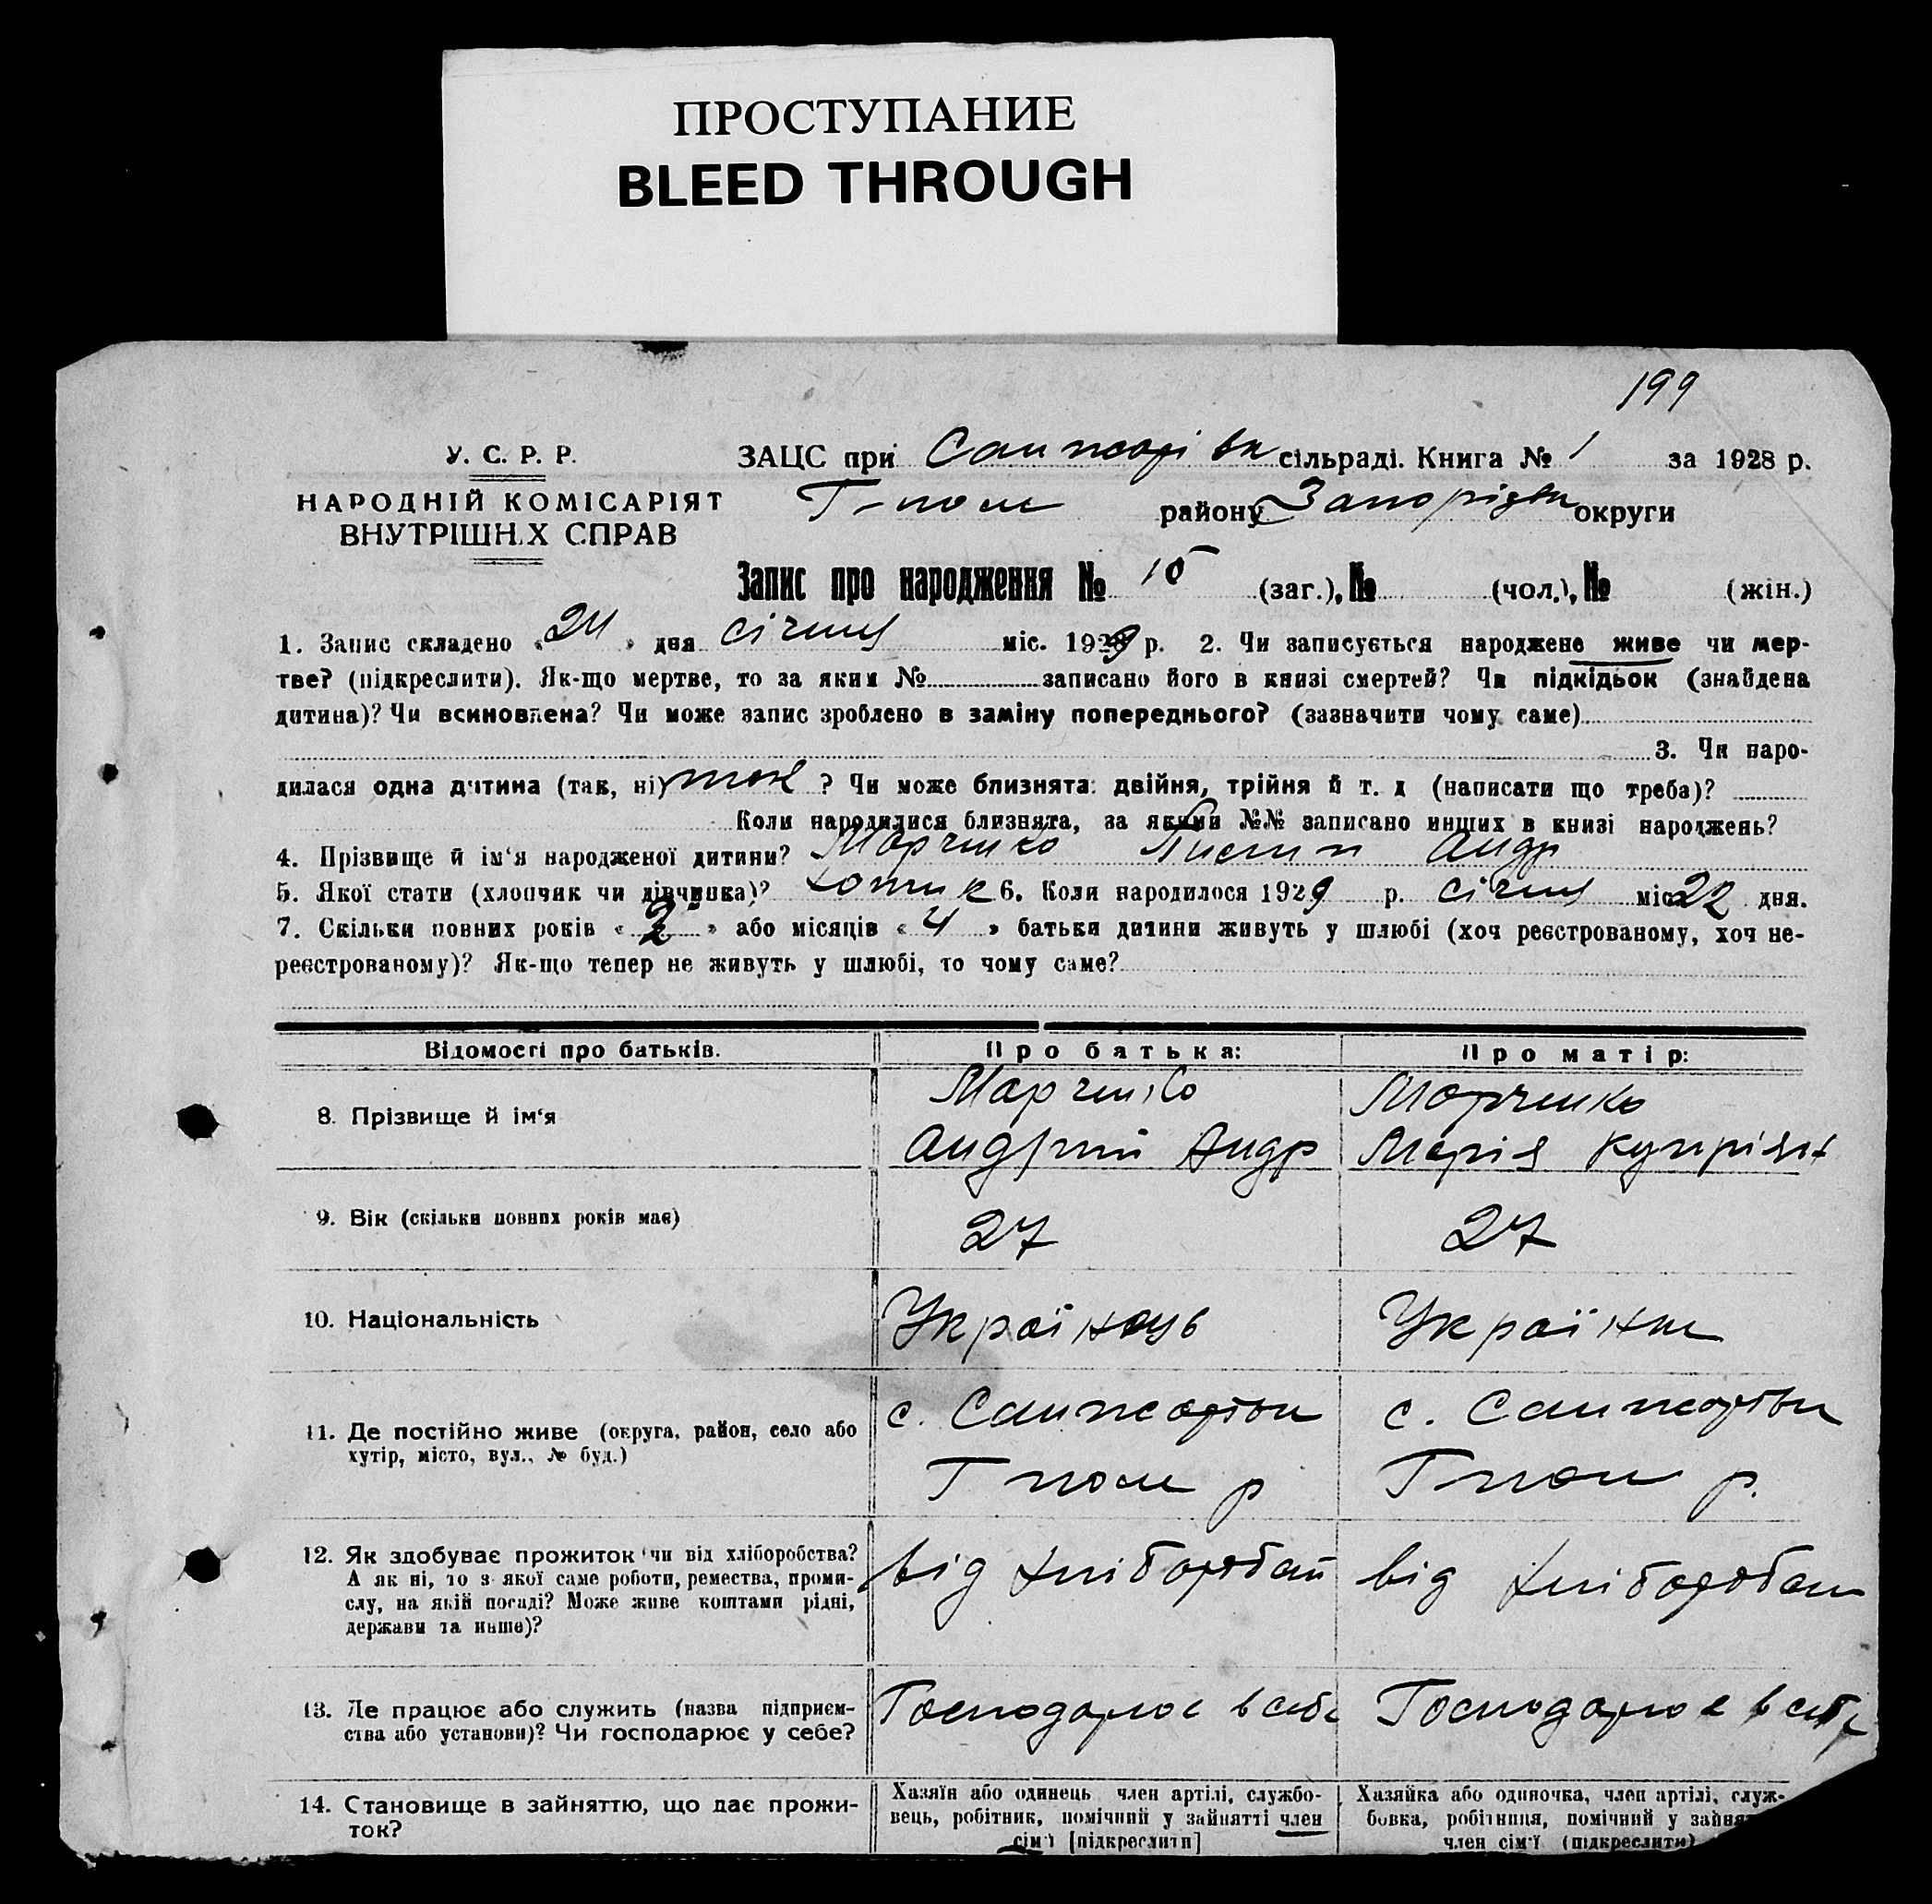 ПРОСТУПАНИЕ
BLEED THROUGH
199
У. С. Р. Р.
НАРОДНІЙ КОМІСАРІЯТ
ВНУТРІШНІХ СПРАВ
ЗАЦС при Санжарівк сільраді. Книга № 1 за 1928 р.
Г-пол району Запорізьк округи
Запис про народження № 15 (заг.), № (чол.), № (жін.)
1. Запис складено « 24 » дня січня міс. 1929 р. 2. Чи записується народжене живе чи мер-
тве? (підкреслити). Як-що мертве, то за яким № записано його в книзі смертей? Чи підкідьок (знайдена
дитина)? Чи всиновлена? Чи може запис зроблено в заміну попереднього? (зазначити чому саме)
3. Чи наро-
дилася одна дитина (так, ні) так ? Чи може близнята: двійня, трійня й т. д (написати що треба)?
Коли народилися близнята, за якими №№ записано инших в книзі народжень?
4. Прізвище й ім'я народженої дитини? Марченко Андр
5. Якої стати (хлопчик чи дівчинка)? 6. Коли народилося 1929 р. січня міс 22 дня.
7. Скільки повних років « 2 » або місяців « 4 » батьки дитини живуть у шлюбі (хоч реєстрованому, хоч не-
реєстрованому)? Як-що тепер не живуть у шлюбі, то чому саме?
Відомості про батьків.
Про батька:
Про матір:
8. Прізвище й ім'я
Марченко
Андрій Андр
Марченко
Марія Купріян
9. Вік (скільки повних років має)
27
27
10. Національність
Українець
Українк
11. Де постійно живе (округа, район, село або
хутір, місто, вул., № буд.)
с. Санжарівк
Г пол р
с. Санжарівк
Г-пол р.
12. Як здобуває прожиток чи від хліборобства?
А як ні, то з якої саме роботи, ремества, проми-
слу, на якій посаді? Може живе коштами рідні,
держави та инше)?
від хліборобст
від хліборобст
13. Де працює або служить (назва підприєм-
ства або установи)? Чи господарює у себе?
Господарює в себе
Господарює в себе
14. Становище в зайняттю, що дає прожи-
ток?
Хазяїн або одинець член артілі, службо-
вець, робітник, помічний у зайнятті член
сім'ї [підкреслити]
Хазяйка або одиночка, член артілі, служ-
бовка, робітниця, помічний у зайня
член сім'ї (підкреслити)